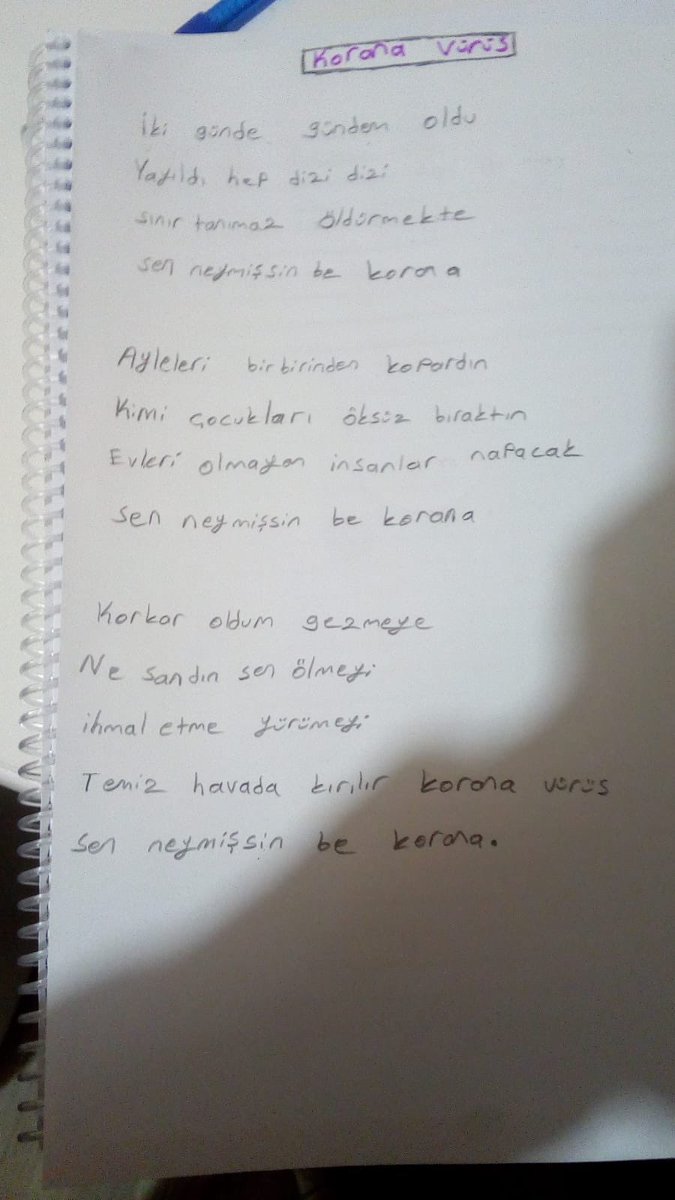 Korona vürüs
İki günde gündem oldu
Yayıldı hep dizi dizi
sınır tanımaz öldürmekte
sen neymişsin be korona
Ayleleri birbirinden kopardın
Kimi çocukları öksüz bıraktın
Evleri olmayan insanlar napacak
Sen neymişsin be korona
Korkar oldum gezmeye
Ne sandın sen ölmeyi
ihmal etme yürümeyi
Temiz havada kırılır korona vürüs
Sen neymişsin be korona.